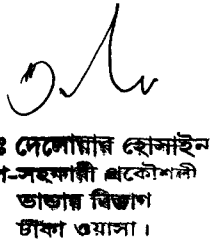 ঃ দেলোয়ার হোসাইন
-সহকারী প্রকৌশলী
ভান্ডার বিভাগ
ঢাকা ওয়াসা।